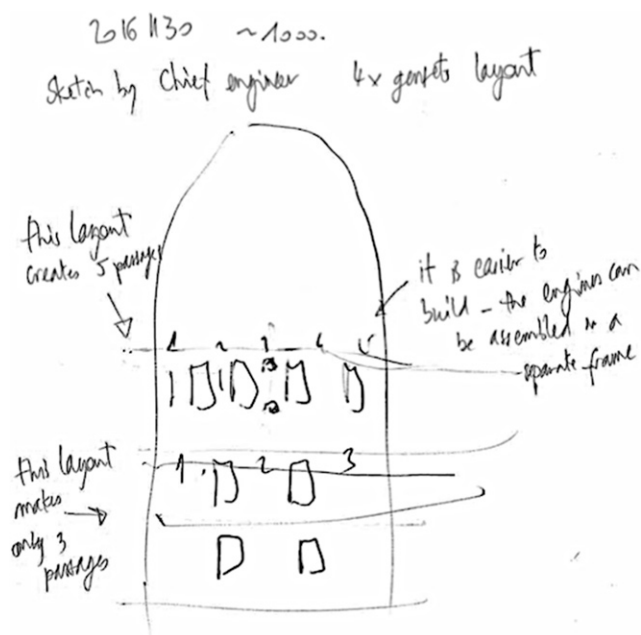 2016 1130 ~1000.
Sketch by Chief engineer 4x gensets layout
this layout
creates 5 passages
it is easier to
build – the engines can
be assembled in a
separate frame
1 2 3 4 5
this layout
makes
only 3
passages
1 2 3